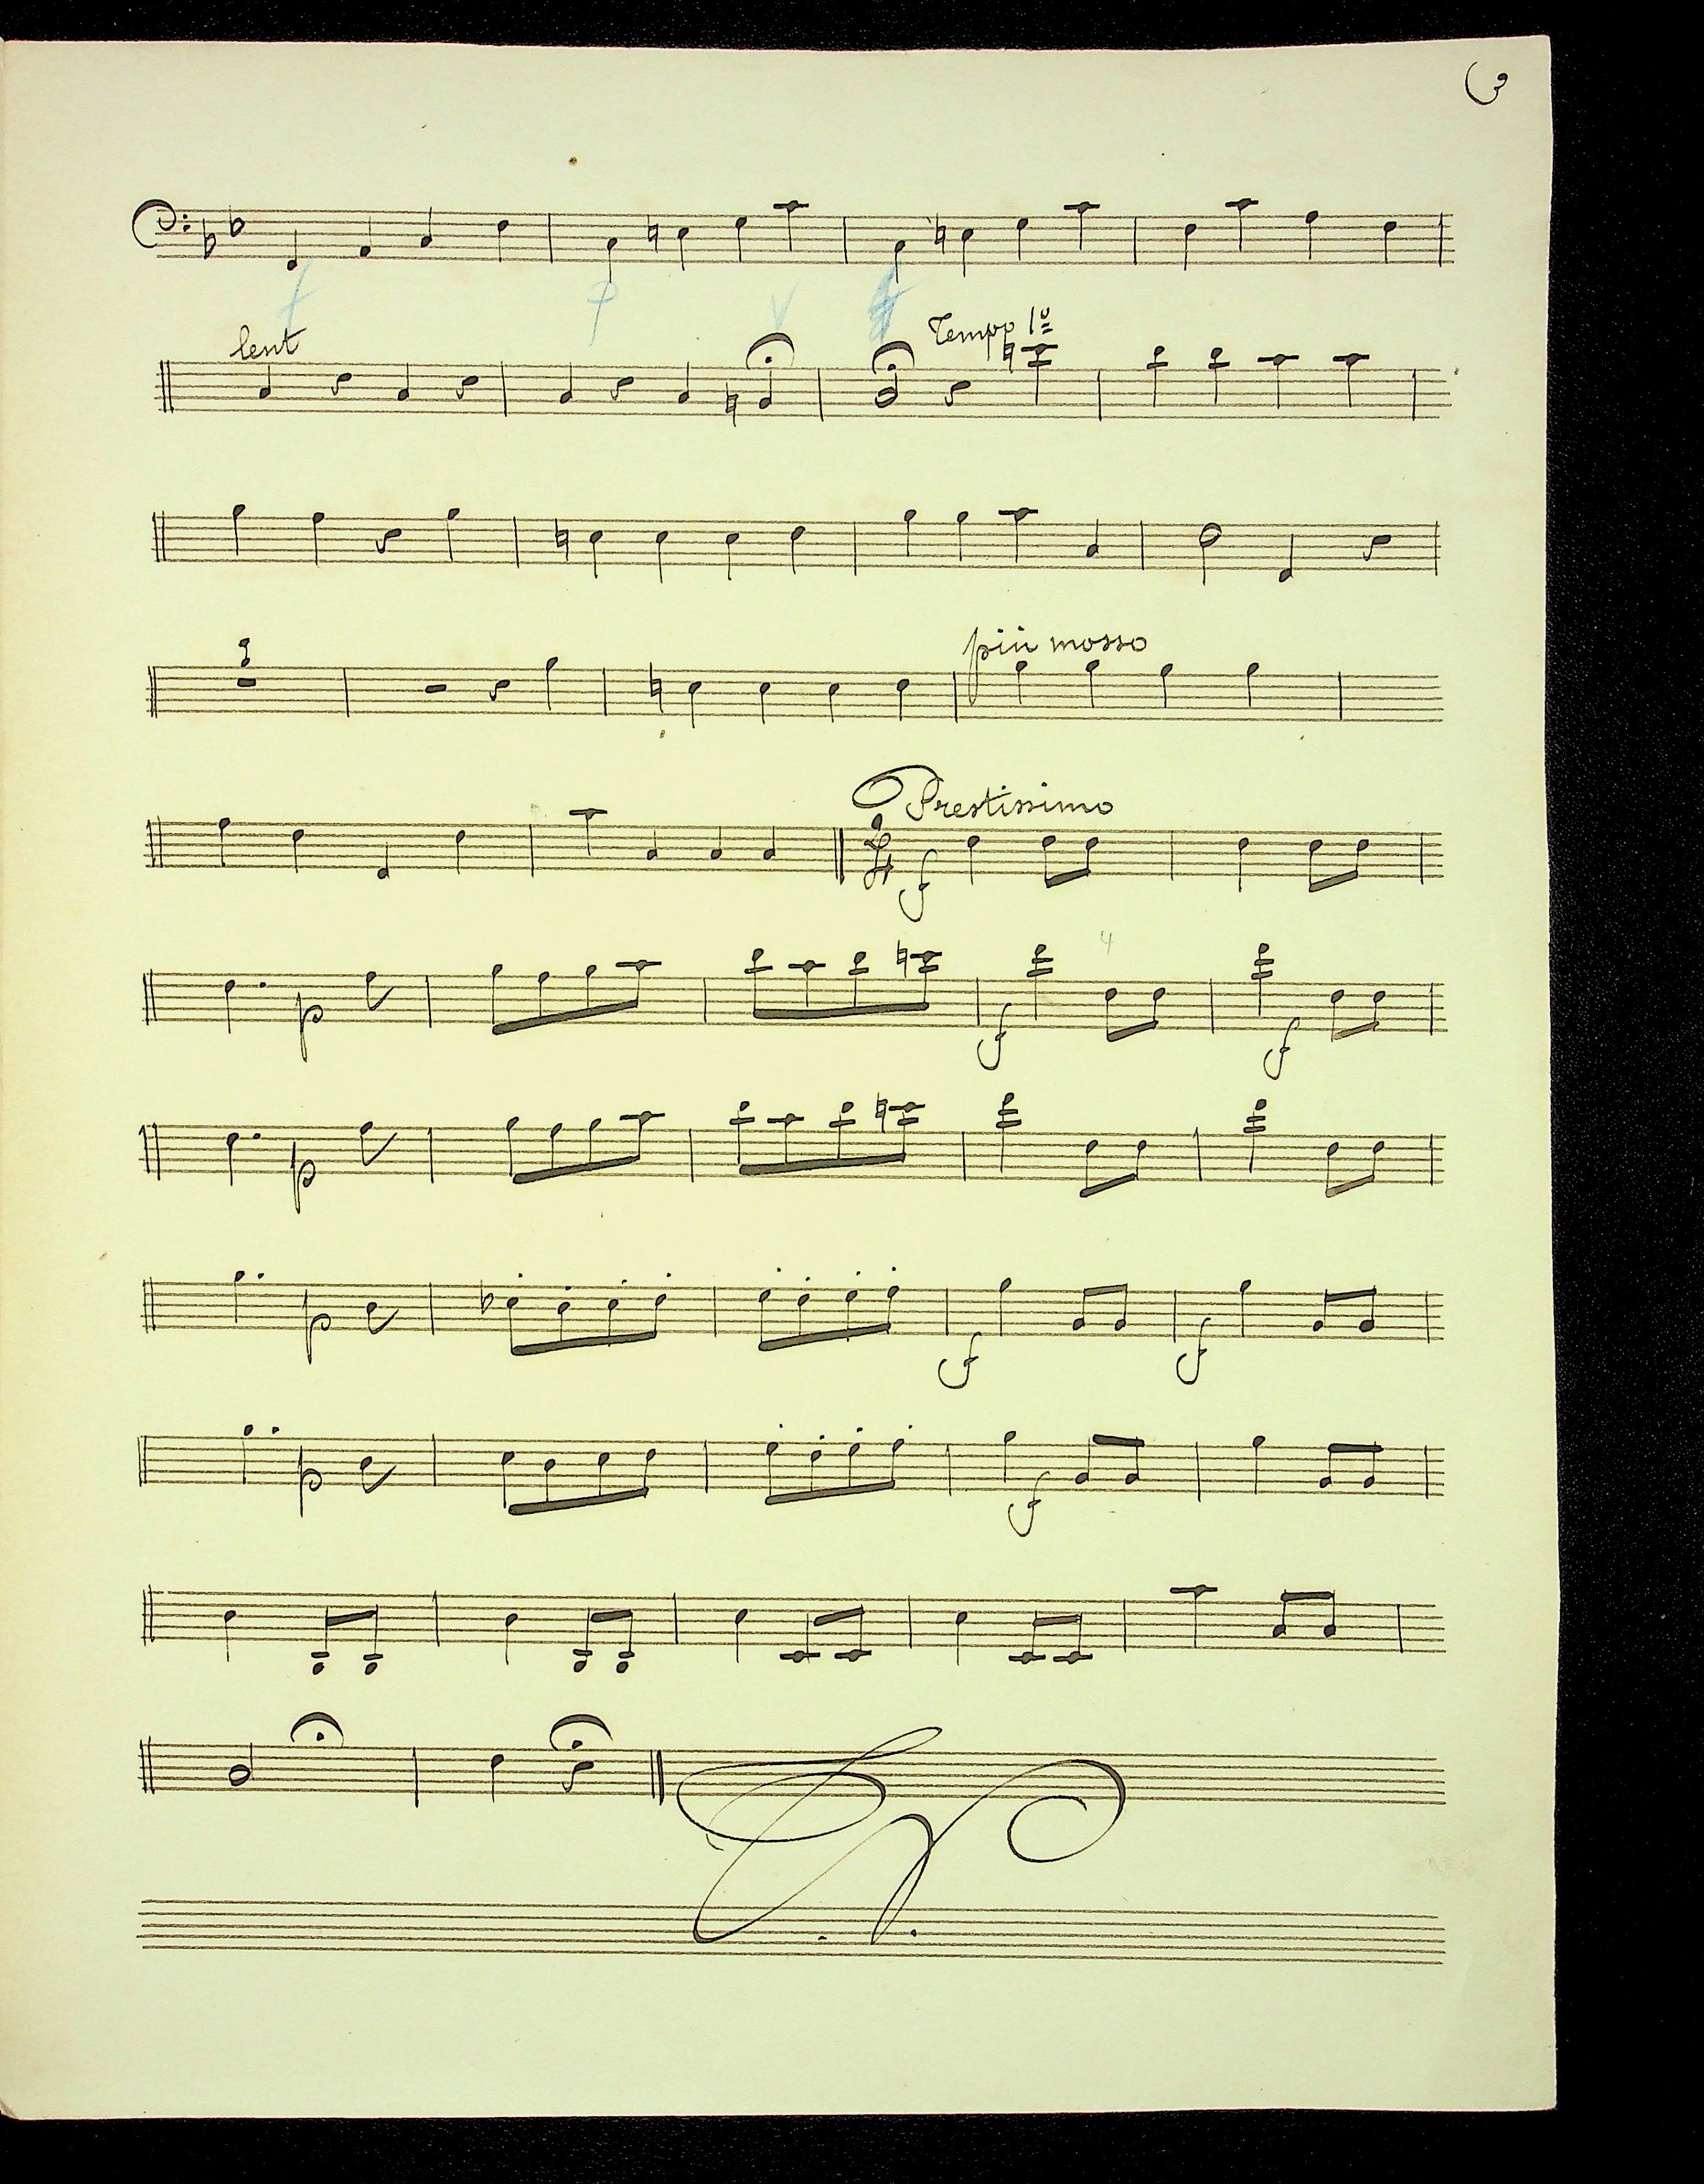 3
f p v
lent
Tempo 1º
3
più mosso
Prestissimo
2
4
f
4
p f f
p
p f f
p f